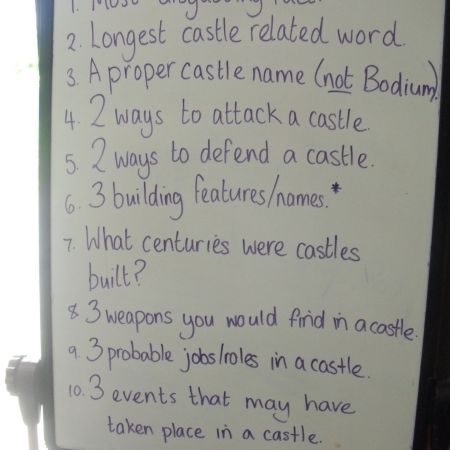 1. Most disgusting
2. Longest castle related word.
3. A proper castle name (not Bodium).
4. 2 ways to attack a castle.
5. 2 ways to defend a castle.
6. 3 building features/names.*
7. What centuries were castles
built?
8 3 weapons you would find in a castle.
9. 3 probable jobs/roles in a castle.
10. 3 events that may have
taken place in a castle.